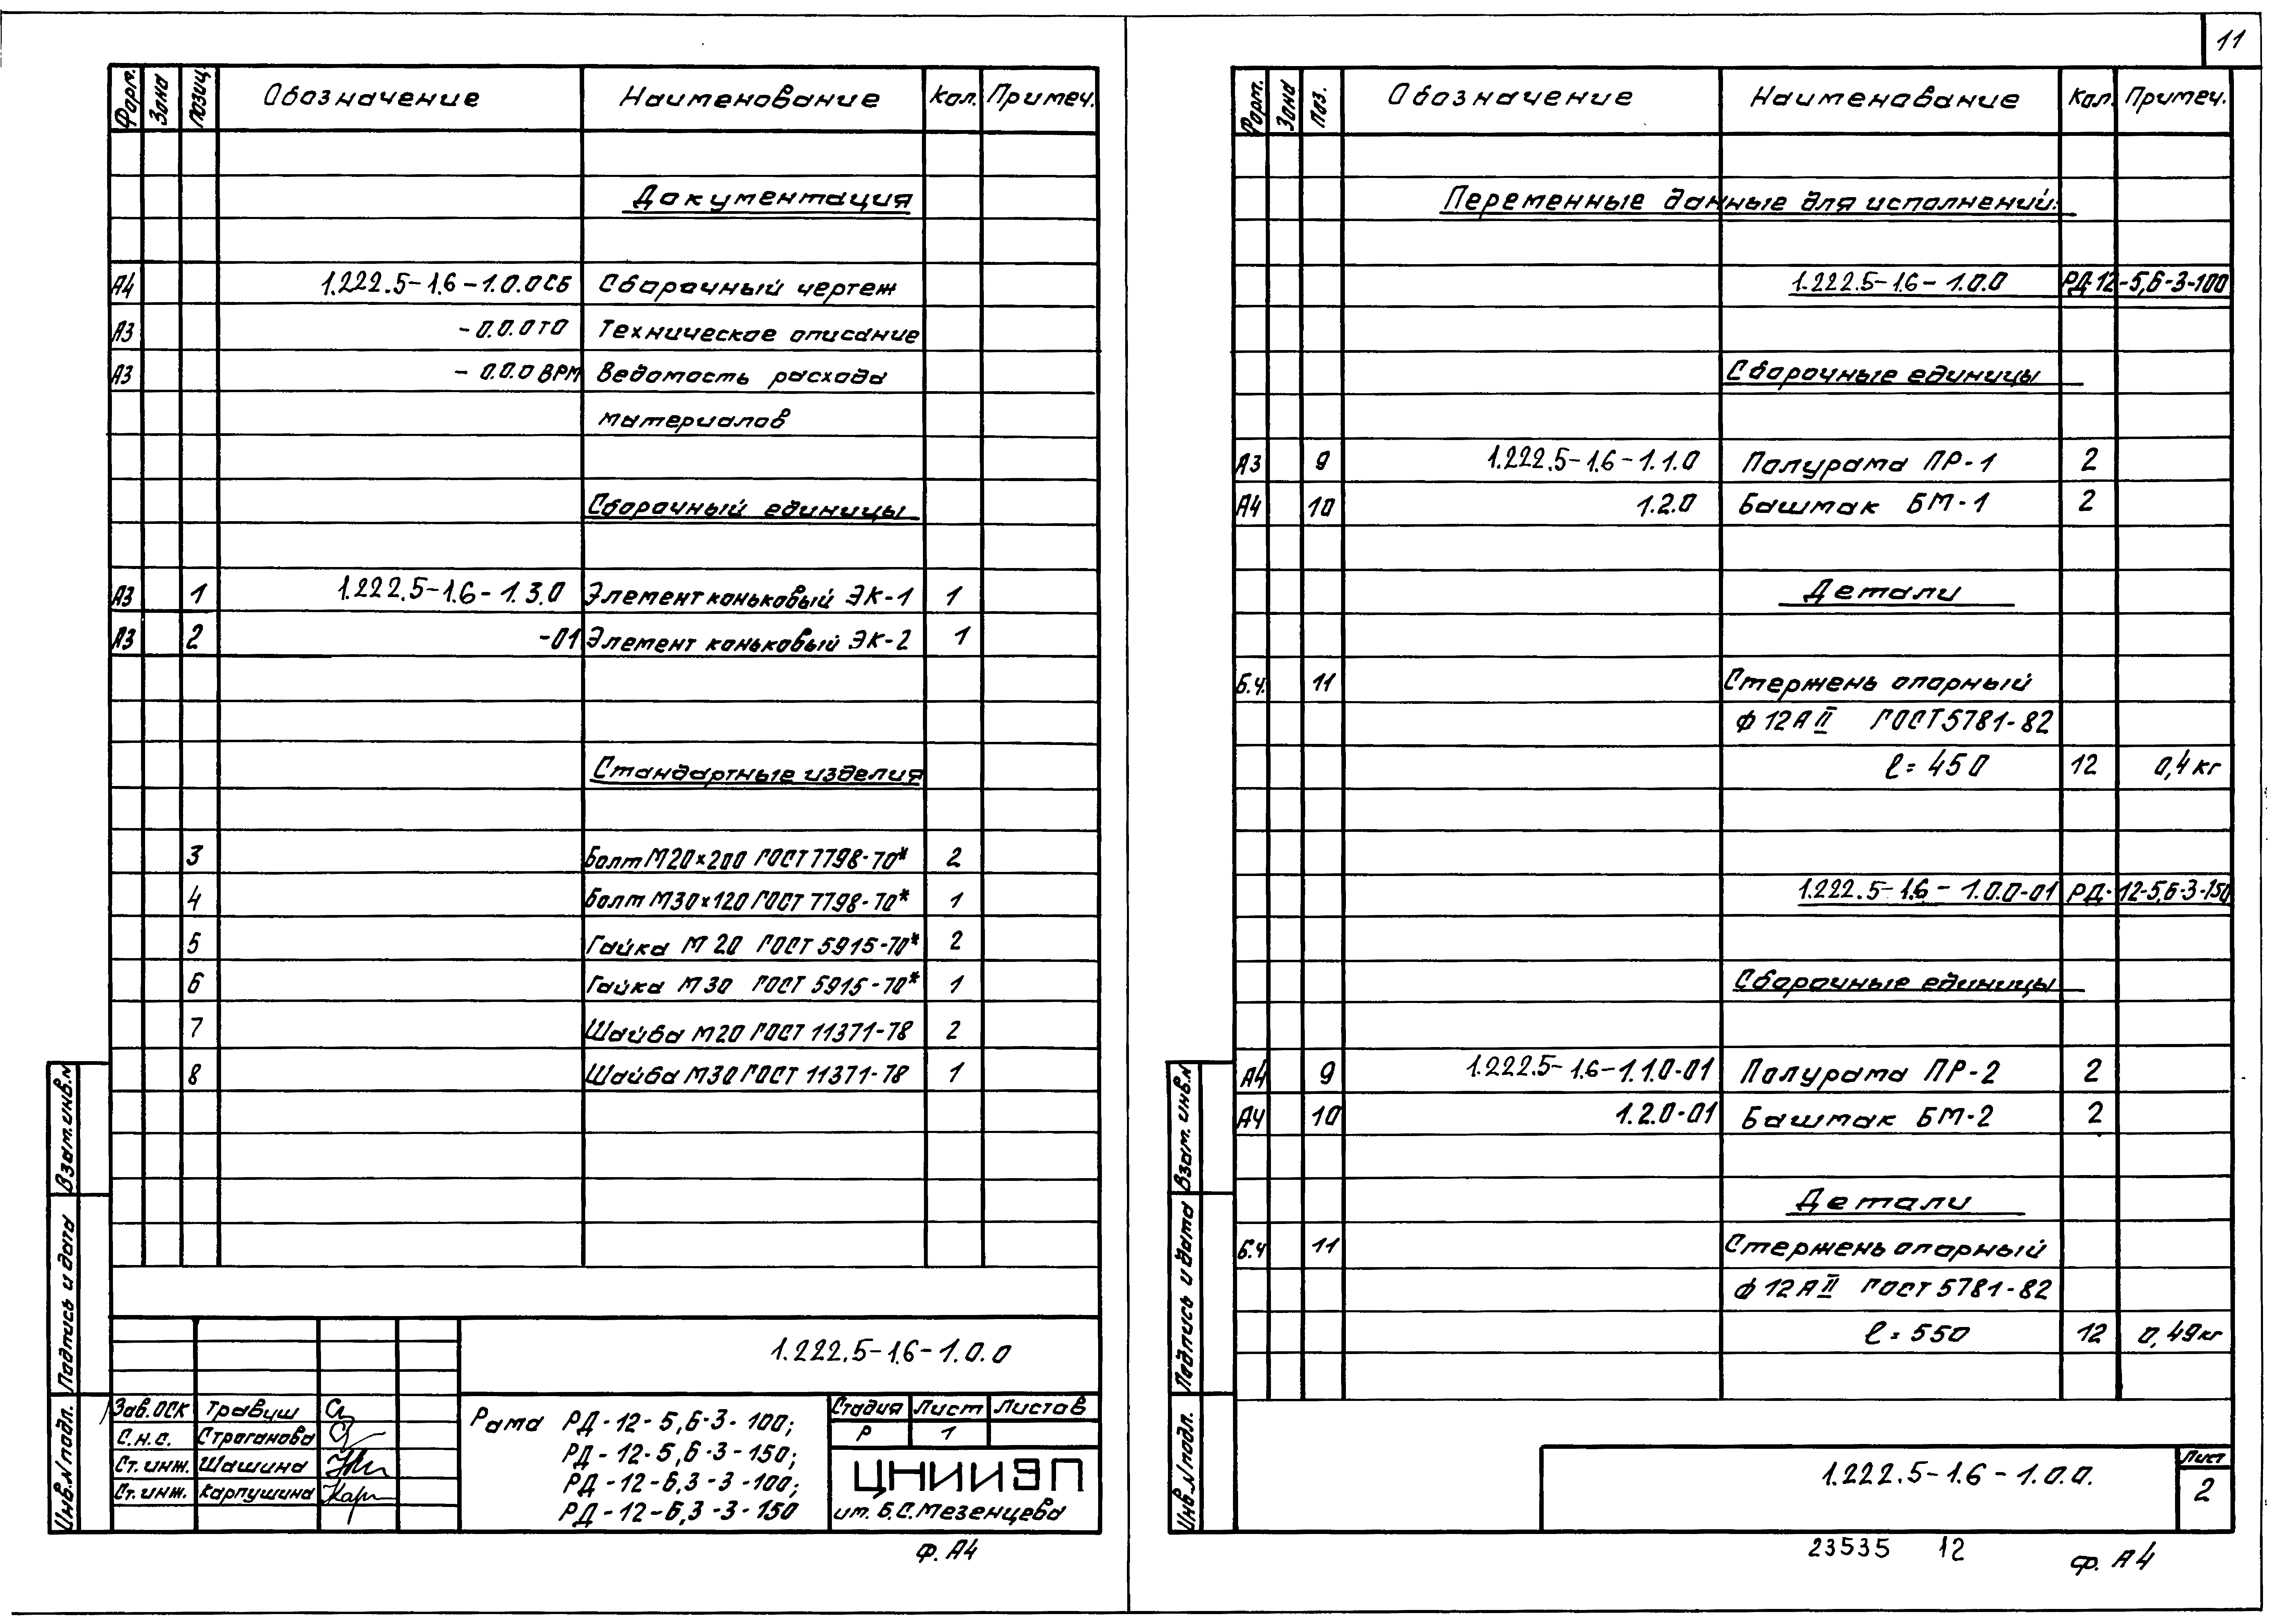 11
Форм. Зона Позиц. Обозначение Наименование Кол. Примеч.
Документация
А4 1.222.5-1.6-1.0.0СБ Сборочный чертеж
А3 -0.0.0ТО Техническое описание
А3 -0.0.0ВРМ Ведомость расхода
материалов
Сборочный единицы
А3 1 1.222.5-1.6-1.3.0 Элемент коньковый ЭК-1 1
А3 2 -01 Элемент коньковый ЭК-2 1
Стандартные изделия
3 Болт М20×200 ГОСТ 7798-70* 2
4 Болт М30×120 ГОСТ 7798-70* 1
5 Гайка М20 ГОСТ 5915-70* 2
6 Гайка М30 ГОСТ 5915-70* 1
7 Шайба М20 ГОСТ 11371-78 2
8 Шайба М30 ГОСТ 11371-78 1
Взам.инв.N
Подпись и дата
Инв.N подл.
1.222.5-1.6-1.0.0
Зав.ОСК Травуш
С.н.с. Строганова
Ст.инж. Шашина
Ст.инж. Карпушина
Рама РД-12-5,6-3-100;
РД-12-5,6-3-150;
РД-12-6,3-3-100;
РД-12-6,3-3-150
Стадия Лист Листов
Р 1
ЦНИИЭП
им. Б.С.Мезенцева
Ф. А4
Форм. Зона Поз. Обозначение Наименование Кол. Примеч.
Переменные данные для исполнений:
1.222.5-1.6-1.0.0 РД-12-5,6-3-100
Сборочные единицы
А3 9 1.222.5-1.6-1.1.0 Полурама ПР-1 2
А4 10 1.2.0 Башмак БМ-1 2
Детали
Б.ч. 11 Стержень опорный
Ф12АII ГОСТ 5781-82
ℓ=450 12 0,4кг
1.222.5-1.6-1.0.0-01 РД-12-5,6-3-150
Сборочные единицы
А4 9 1.222.5-1.6-1.1.0-01 Полурама ПР-2 2
А4 10 1.2.0-01 Башмак БМ-2 2
Детали
Б.ч 11 Стержень опорный
Ф12АII ГОСТ 5781-82
ℓ=550 12 0,49кг
Взам. инв.N
Подпись и дата
Инв.N подл.
1.222.5-1.6-1.0.0.
Лист
2
23535 12
Ф. А4